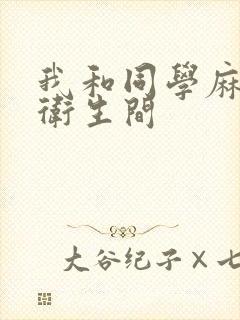 我和同學麻
衛生間
大谷纪子×七